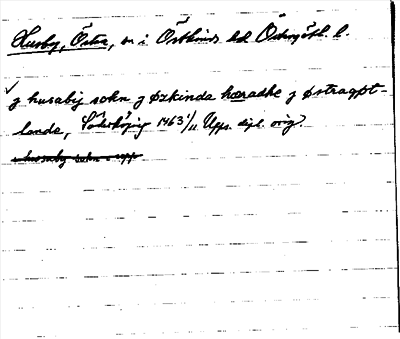 Husby, Östra, sn i Östkinds hd Östergötl. l.
j husabij sokn j øzkinda hæradhe j østragøt-
landa, Söderköping 1463 1/11 Upps. dipl. orig.